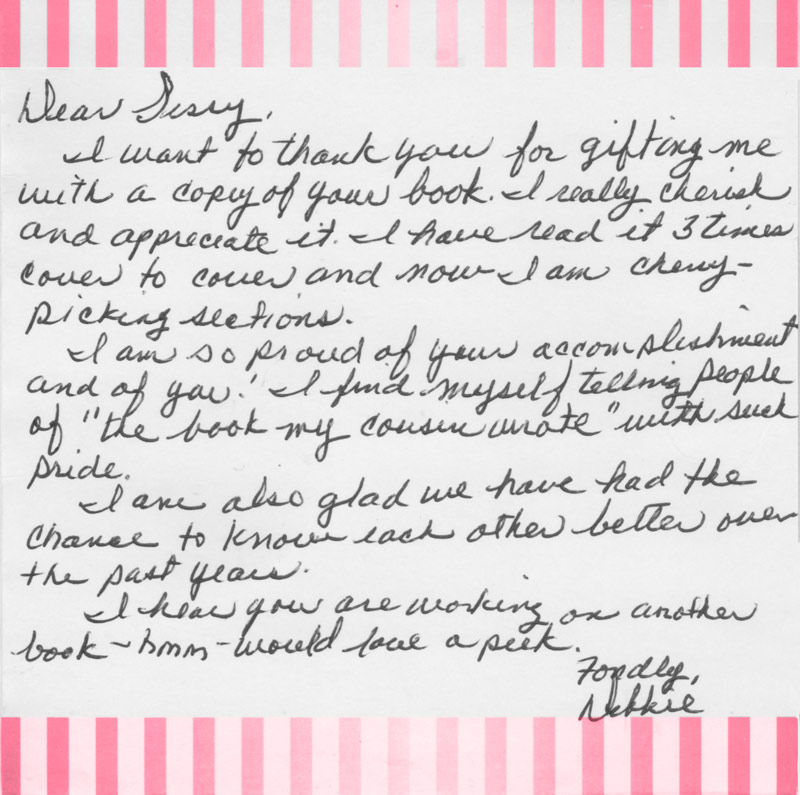 Dear Sissy,
I want to thank you for gifting me
with a copy of your book. I really cherish
and appreciate it. I have read it 3 times
cover to cover and now I am cherry-
picking sections.
I am so proud of your accomplishment
and of you! I find myself telling people
of "the book my cousin wrote" with such
pride.
I am also glad we have had the
chance to know each other better over
the past years.
I hear you are working on another
book - hmm - would love a peek.
Fondly,
Debbie